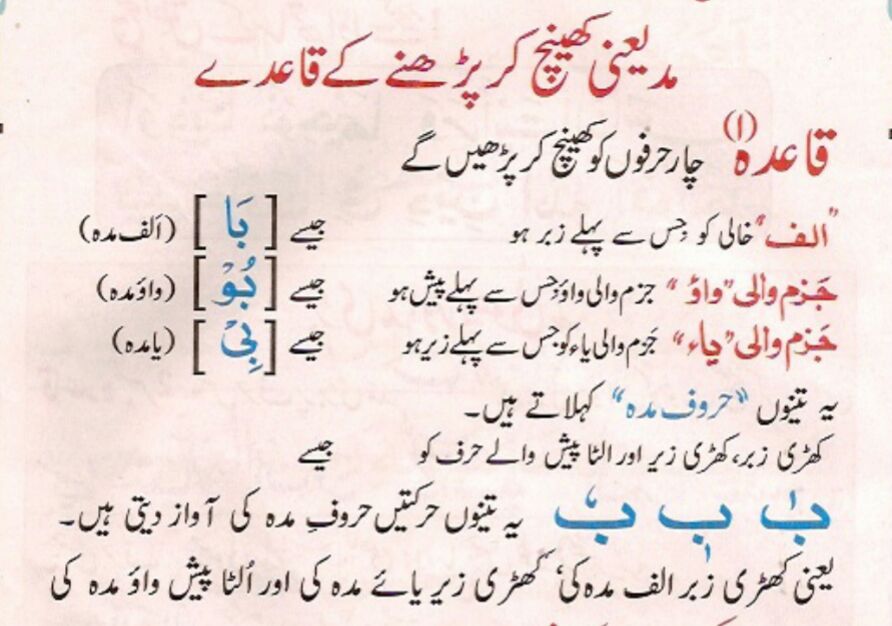 مد یعنی کھینچ کر پڑھنے کے قاعدے
قاعدہ (۱) چار حرفوں کو کھینچ کر پڑھیں گے
"الف" خالی کو جس سے پہلے زبر ہو جیسے [بَا] (الف مدہ)
جَزم والی "واؤ" جزم والی واؤ جس سے پہلے پیش ہو جیسے [بُوْ] (واؤ مدہ)
جَزم والی "یاء" جَزم والی یاء کو جس سے پہلے زیر ہو جیسے [بِیْ] (یا مدہ)
یہ تینوں "حروف مدہ" کہلاتے ہیں۔
کھڑی زبر، کھڑی زیر اور الٹا پیش والے حرف کو جیسے
بٰ بٖ بٗ یہ تینوں حرکتیں حروفِ مدہ کی آواز دیتی ہیں۔
یعنی کھڑی زبر الف مدہ کی، کھڑی زیر یائے مدہ کی اور اُلٹا پیش واؤ مدہ کی